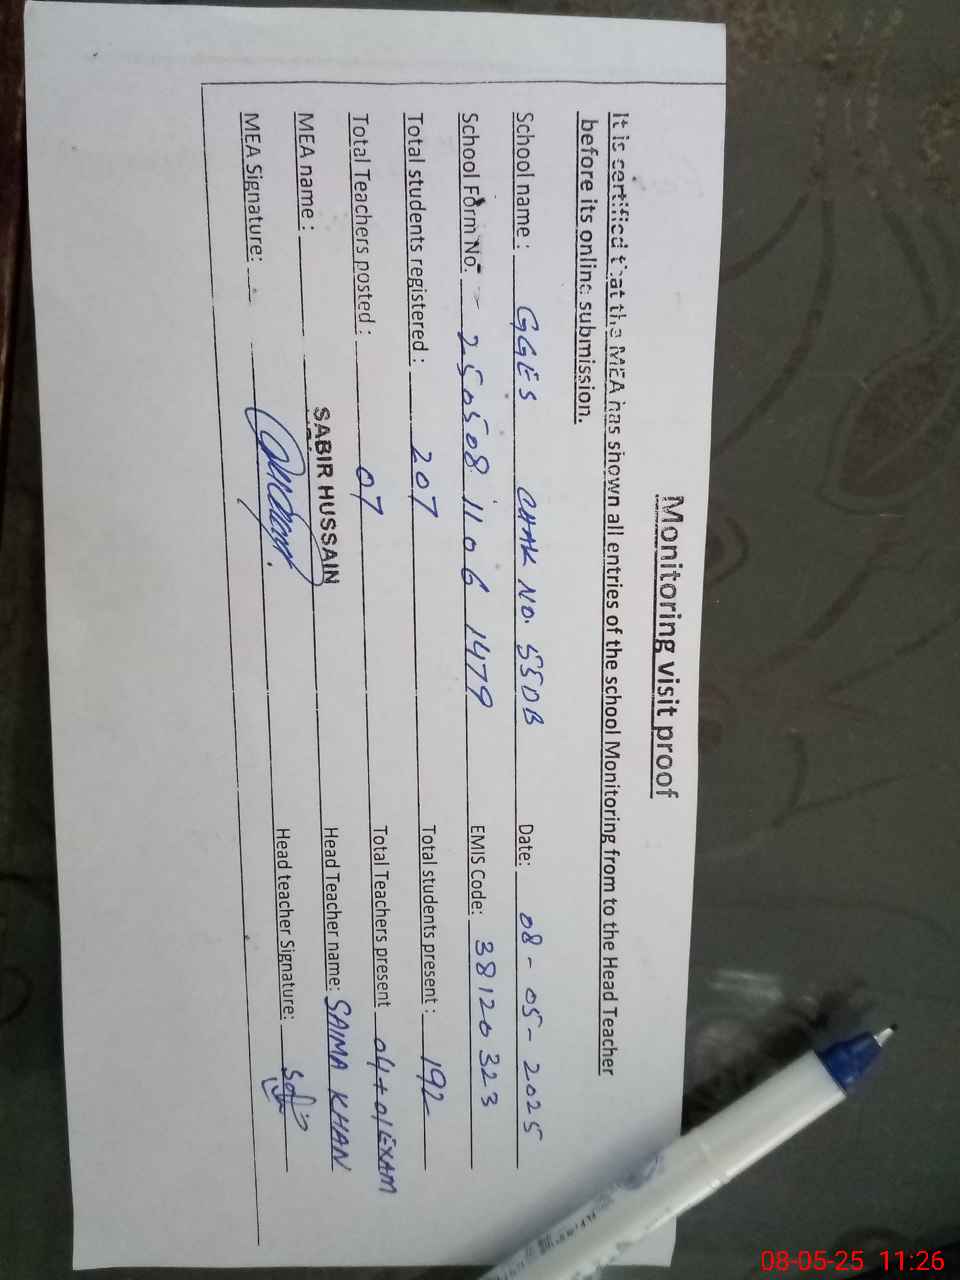 Monitoring visit proof
It is certified that the MEA has shown all entries of the school Monitoring from to the Head Teacher
before its online submission.
School name : GGES CHAK NO. 55DB Date: 08-05-2025
School Form No. 250508 1106 1479 EMIS Code: 38120323
Total students registered : 207 Total students present : 192
Total Teachers posted : 07 Total Teachers present 04+01EXAM
MEA name : SABIR HUSSAIN Head Teacher name: SAIMA KHAN
MEA Signature: Head teacher Signature:
08-05-25 11:26